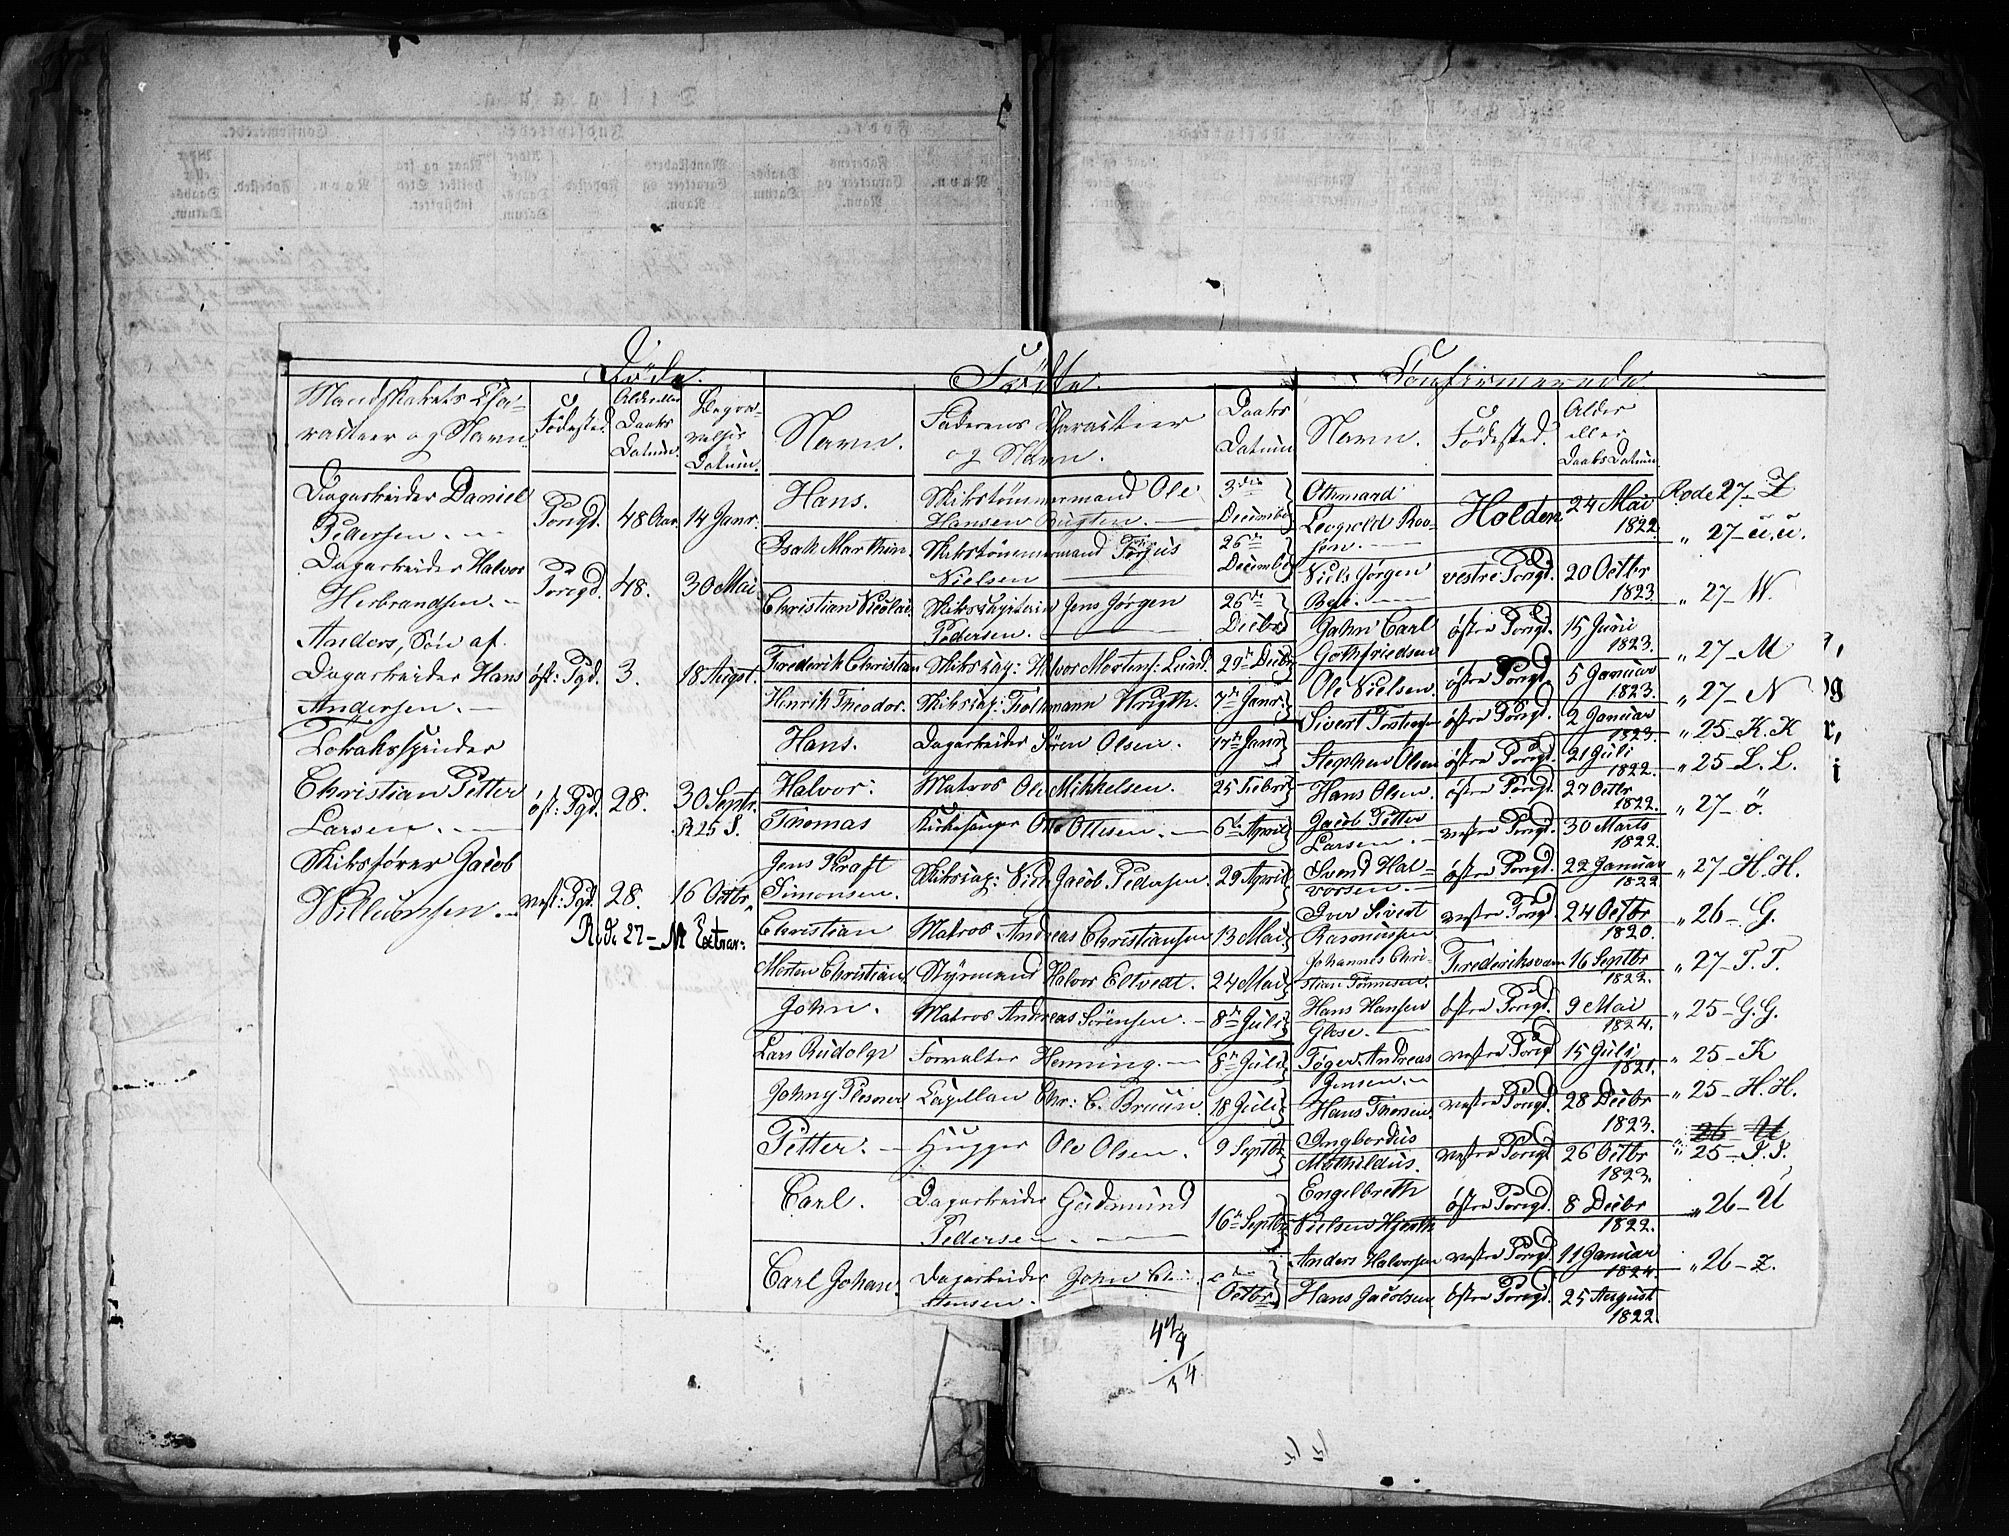 Døde.
Mandskabets Cha-
racteer og Navn
Fødested.
Alder eller
Daabs
Datum.
Begra-
velses
Datum.
Dagarbeider Daniel
Pedersen. Porsgd. 48 Aar. 14 Janr.
Dagarbeider Halvor
Herbrandsen. Porsgd. 48. 30 Mai.
Anders, Søn af
Dagarbeider Hans
Andersen. øst: Pgd. 3. 18 August.
Christian Petter
Larsen. øst: Pgd. 28. 30 Septr.
R 25 S.
Skibsfører Jacob
Willumsen. vest: Pgd. 28. 16 Octbr.
Rode 27 - Extrar:
Fødte.
Navn.
Faderens Character
og Navn.
Daabs
Datum
Hans. Skibstømmermand Ole
Hansen 3die
December
Isak Marthin. Skibstømmermand Torgus
Nielsen 26de
December
Christian Nicolai Jens Jørgen
Pedersen. 26de
Decbr
Frederik Christian Skibscap: Halvor Mortens: Lund. 29de Decbr
Henrik Theodor. Skibscap: Wrigth. 7de Janr.
Hans. Dagarbeider Søren Olsen. 17de Janr
Halvor. Matros Ole Mikkelsen. 25 Febr
Thomas Kirkesanger Ole Ottesen. 6te April
Jens Kraft
Simonsen. Skibscap: Jacob Pedersen. 29 April
Christian Matros Andreas Christiansen 13 Mai
Morten Christian Styrmand Halvor Eltvedt. 24 Mai
John. Matros Andreas Sørensen. 8de Juli
Lars Rudolph Forvalter Henning. 8de Juli
Johny Plesner Capellan Chr: C. Bruun. 18 Juli
Petter. Hugger Ole Olsen. 9 Septbr
Carl. Dagarbeider Gudmund
Pedersen. 16de Septbr
Carl Johan. Dagarbeider John
stensen. Octbr
Confirmerede
Navn.
Fødested.
Alder
eller
Daabs Datum.
Othmard
Leopold Roo-
sen. Holden 24 Mai
1822. Rode 27 - Z
Niels Jørgen
vestre Porsgd. 20 Octbr
1823. „ 27 - ü.ü.
Jahn Carl
Gothfriedsen østre Porsgd. 15 Juni
1823. „ 27 - W.
Ole Nielsen. østre Porsgd. 5 Januar
1823. „ 27 - M
Sivert Torstensen østre Porsgd. 2 Januar
1823. „ 27 - N
Stephen Olsen østre Porsgd. 21 Juli
1822. „ 25 - K.K
Hans Olsen. østre Porsgd. 27 Octbr
1822. „ 25 - L.L.
Jacob Petter
Larsen. vestre Porsgd. 30 Marts
1822. „ 27 - ö.
Svend Hal-
vorsen østre Porsgd. 22 Januar
1822 „ 27 - H.H.
Iver Sivert
Rasmussen vestre Porsgd. 24 Octbr
1820. „ 26 - G.
Johannes Chri-
stian Tønnesen. Frederiksværn 16 Septbr
1822. „ 27 - T.T.
Hans Hansen
østre Porsgd. 9 Mai
1824. „ 25 - G.G.
Tøger Andreas
Jensen. vestre Porsgd 15 Juli
1821. „ 25 - K
Hans Thorsen. vestre Porsgd. 28 Decbr
1823. „ 25 - H.H.
Ingbordus
Mathildus. vestre Porsgd. 26 Octbr
1823. „ 26 U
„ 25 - I.I.
Engelbreth
Nielsen Hjorth østre Porsgd. 8 Decbr
1822. „ 26 - U
Anders Halvorsen vestre Porsgd. 11 Januar
1824. „ 26 - Z.
Hans Jacobsen østre Porsgd. 25 August
1822.